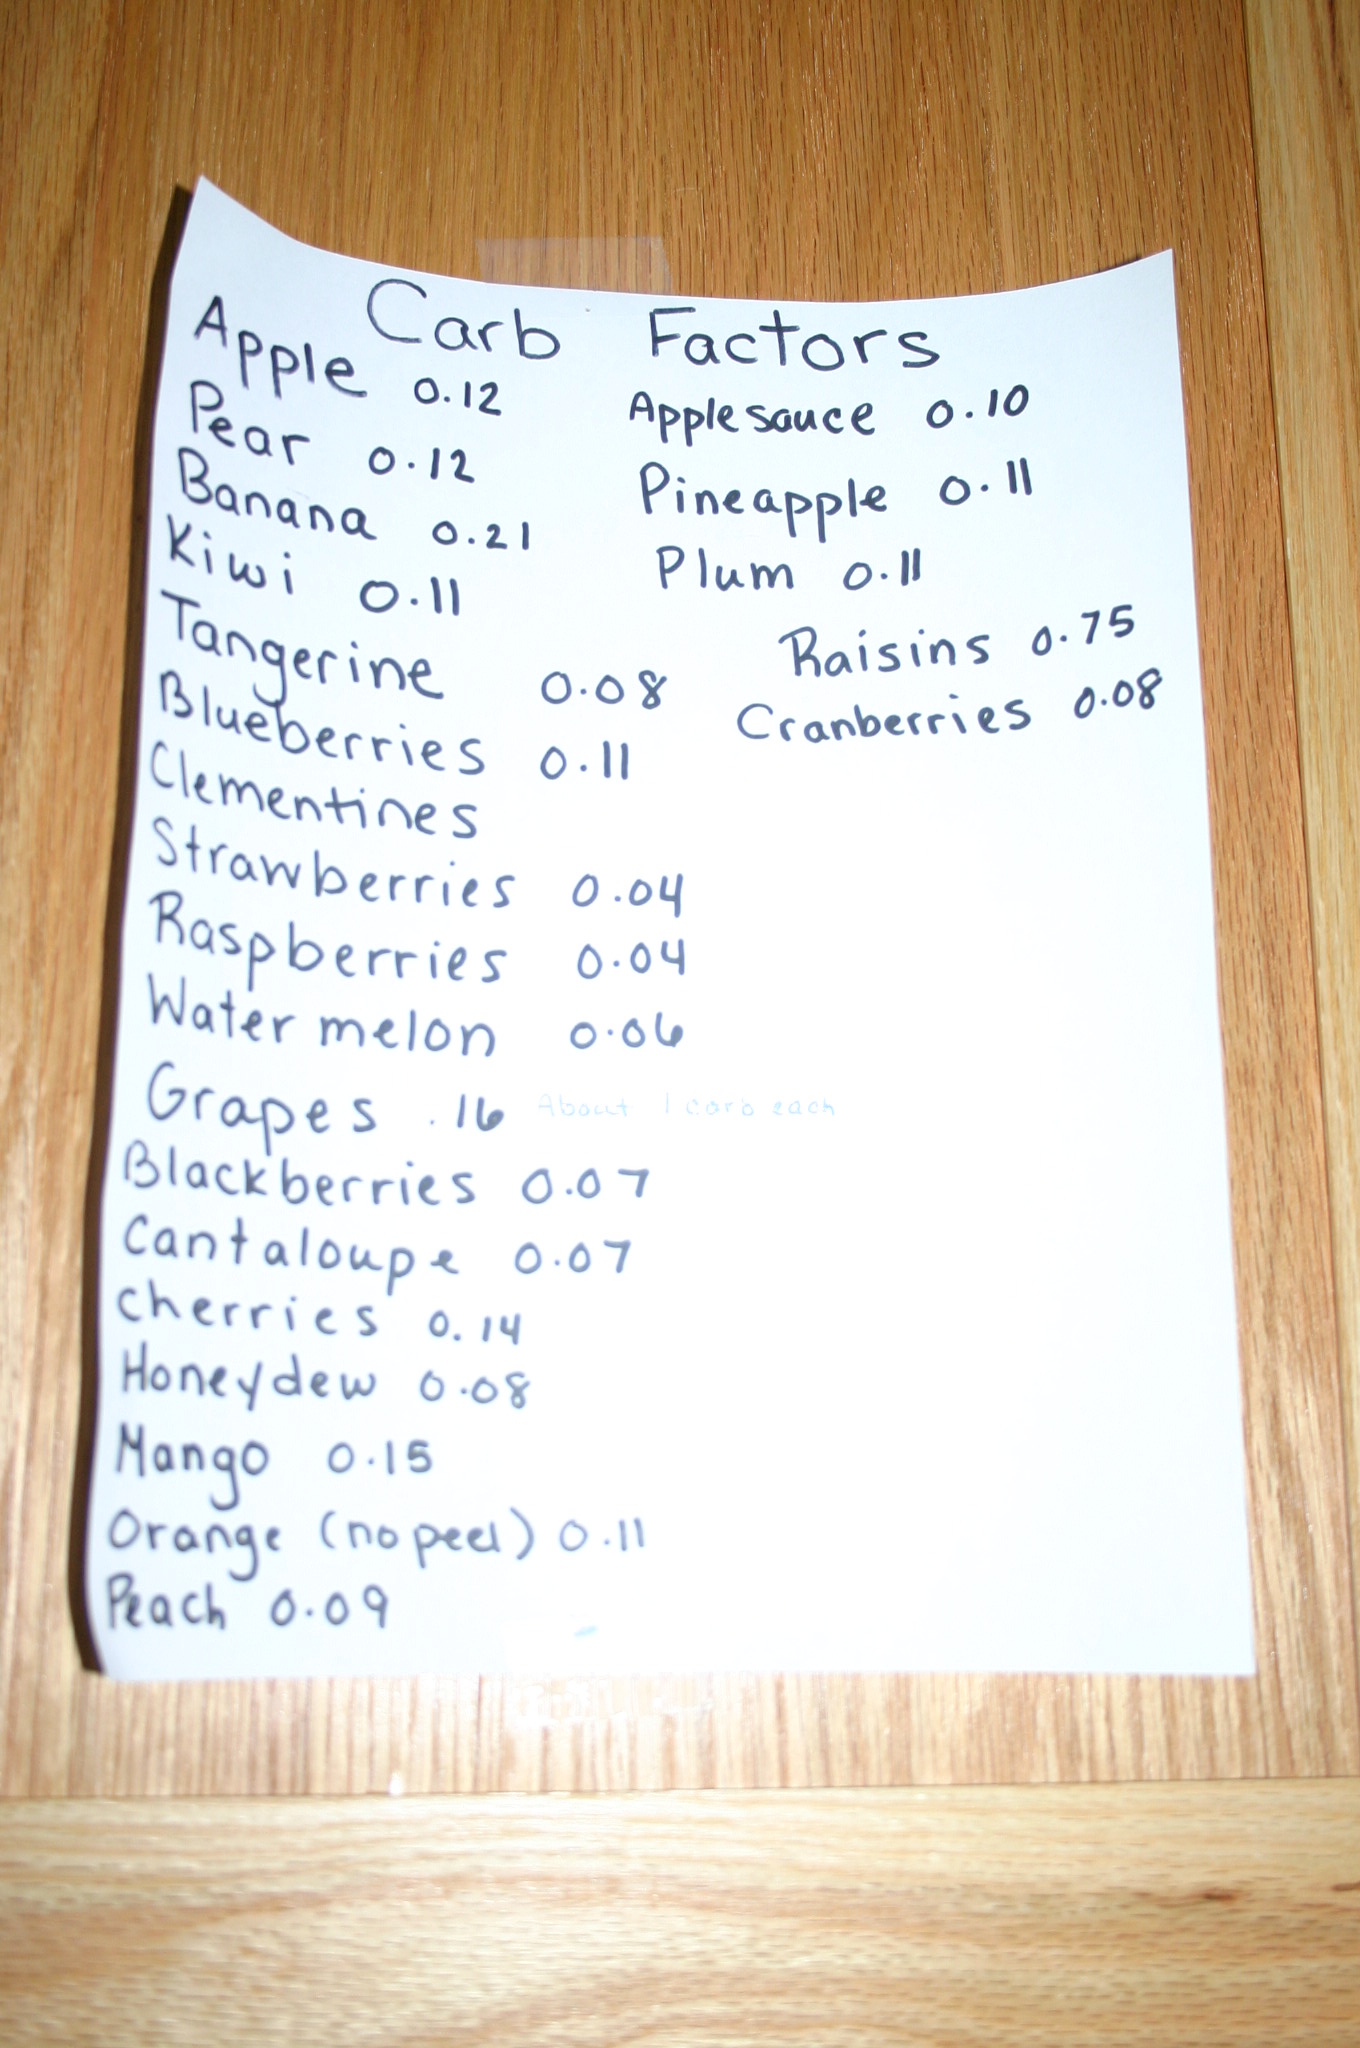 Carb Factors
Apple 0.12
Pear 0.12
Banana 0.21
Kiwi 0.11
Tangerine 0.08
Blueberries 0.11
Clementines
Strawberries 0.04
Raspberries 0.04
Water melon 0.06
Grapes .16 About 1 carb each
Blackberries 0.07
Cantaloupe 0.07
cherries 0.14
Honeydew 0.08
Mango 0.15
Orange (no peel) 0.11
Peach 0.09
Applesauce 0.10
Pineapple 0.11
Plum 0.11
Raisins 0.75
Cranberries 0.08